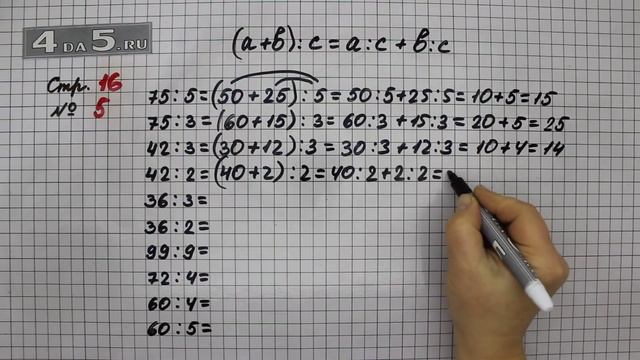 4 DA 5.RU
(a+b):c=a:c+b:c
Стр. 16
№ 5
75:5=(50+25):5=50:5+25:5=10+5=15
75:3=(60+15):3=60:3+15:3=20+5=25
42:3=(30+12):3=30:3+12:3=10+4=14
42:2=(40+2):2=40:2+2:2=
36:3=
36:2=
99:9=
72:4=
60:4=
60:5=